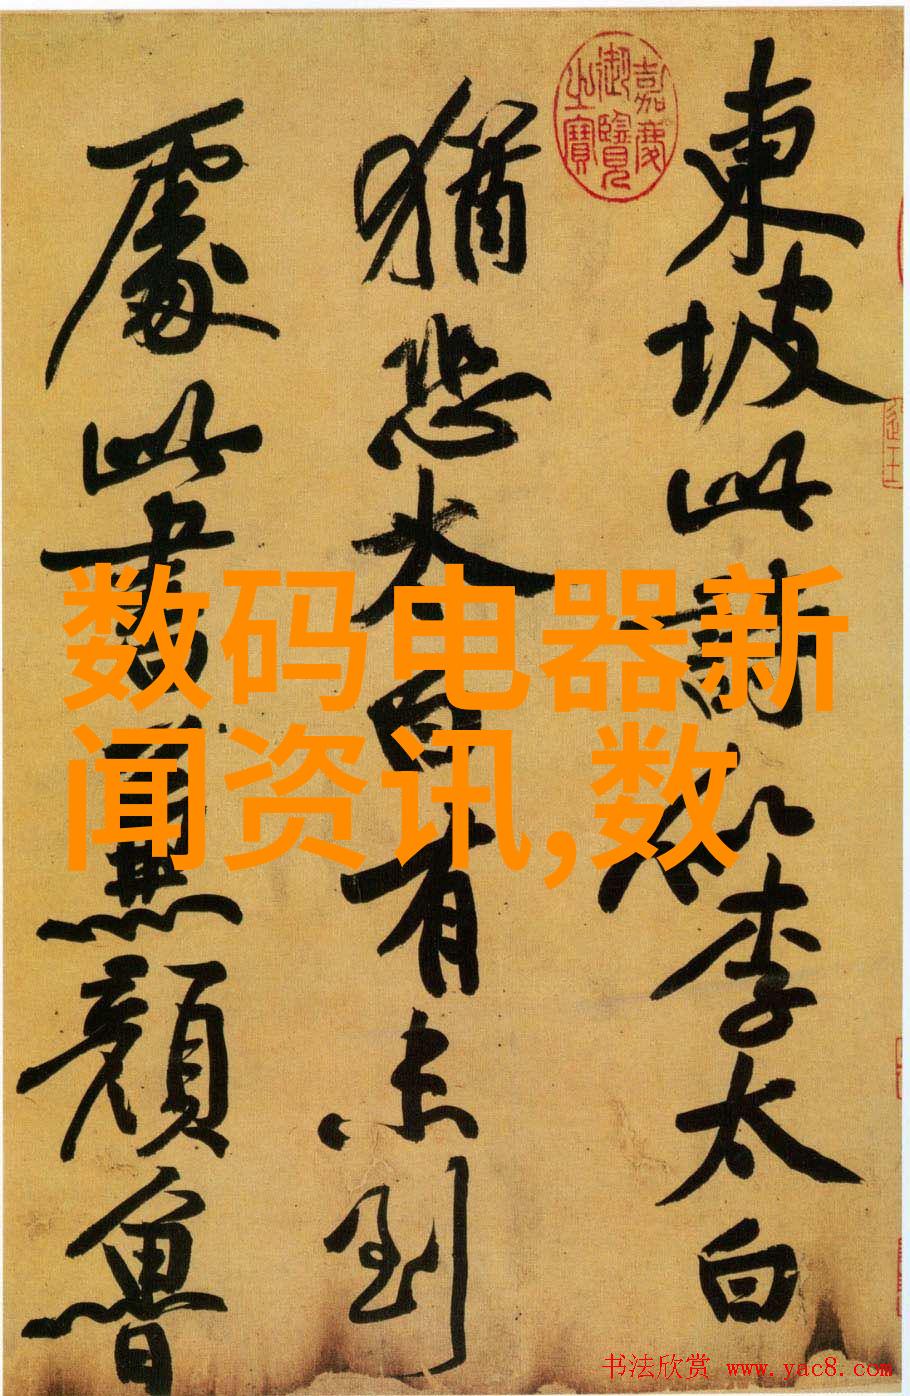 東坡此詩似李太白
猶恐太白有未到
處此書兼顏魯
嘉慶御覽之寶
数码电器新
闻资讯,数
书法欣赏 www.yac8.com